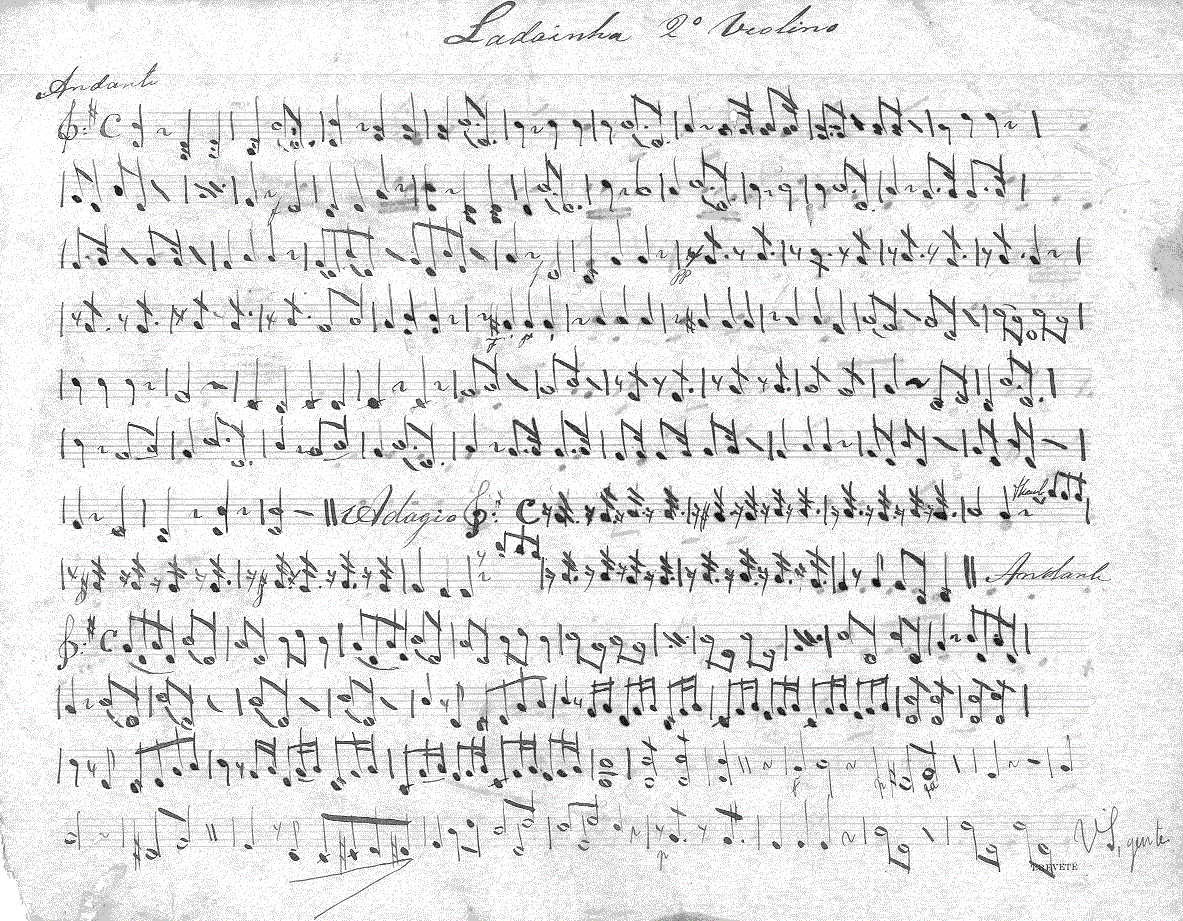 Ladainha 2º Violino
Andante
C
f
f
pp
Adagio
C
Andante
C
BREVETE